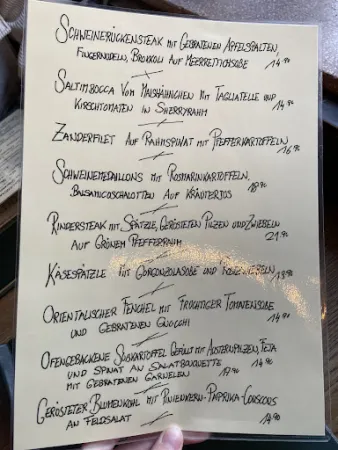 Schweinerückensteak mit Gebratenen Apfelspalten,
Fingernudeln, Brokkoli auf Meerrettichsoße 14.90
Saltimbocca vom Maishähnchen mit Tagliatelle und
Kirschtomaten in Sherryrahm 14.90
Zanderfilet auf Rahmspinat mit Pfefferkartoffeln
16.90
Schweinemedallons mit Rosmarinkartoffeln,
Balsamicoschalotten auf Kräuterjus
Rindersteak mit Spätzle, Gerösteten Pilzen und Zwiebeln
auf Grünem Pfefferrahm 21.90
Käsespätzle mit Gorgonzolasoße und
Orientalischer Fenchel mit Fruchtiger Tomatensoße
und Gebratenen Gnocchi 14.90
Ofengebackene Süßkartoffel Gefüllt mit Austernpilzen, Feta
und Spinat an Salatbouquette 14.90
mit Gebratenen Garnelen 17.90
Gerösteter Blumenkohl mit Pinienkern-Paprika-Couscous
an Feldsalat